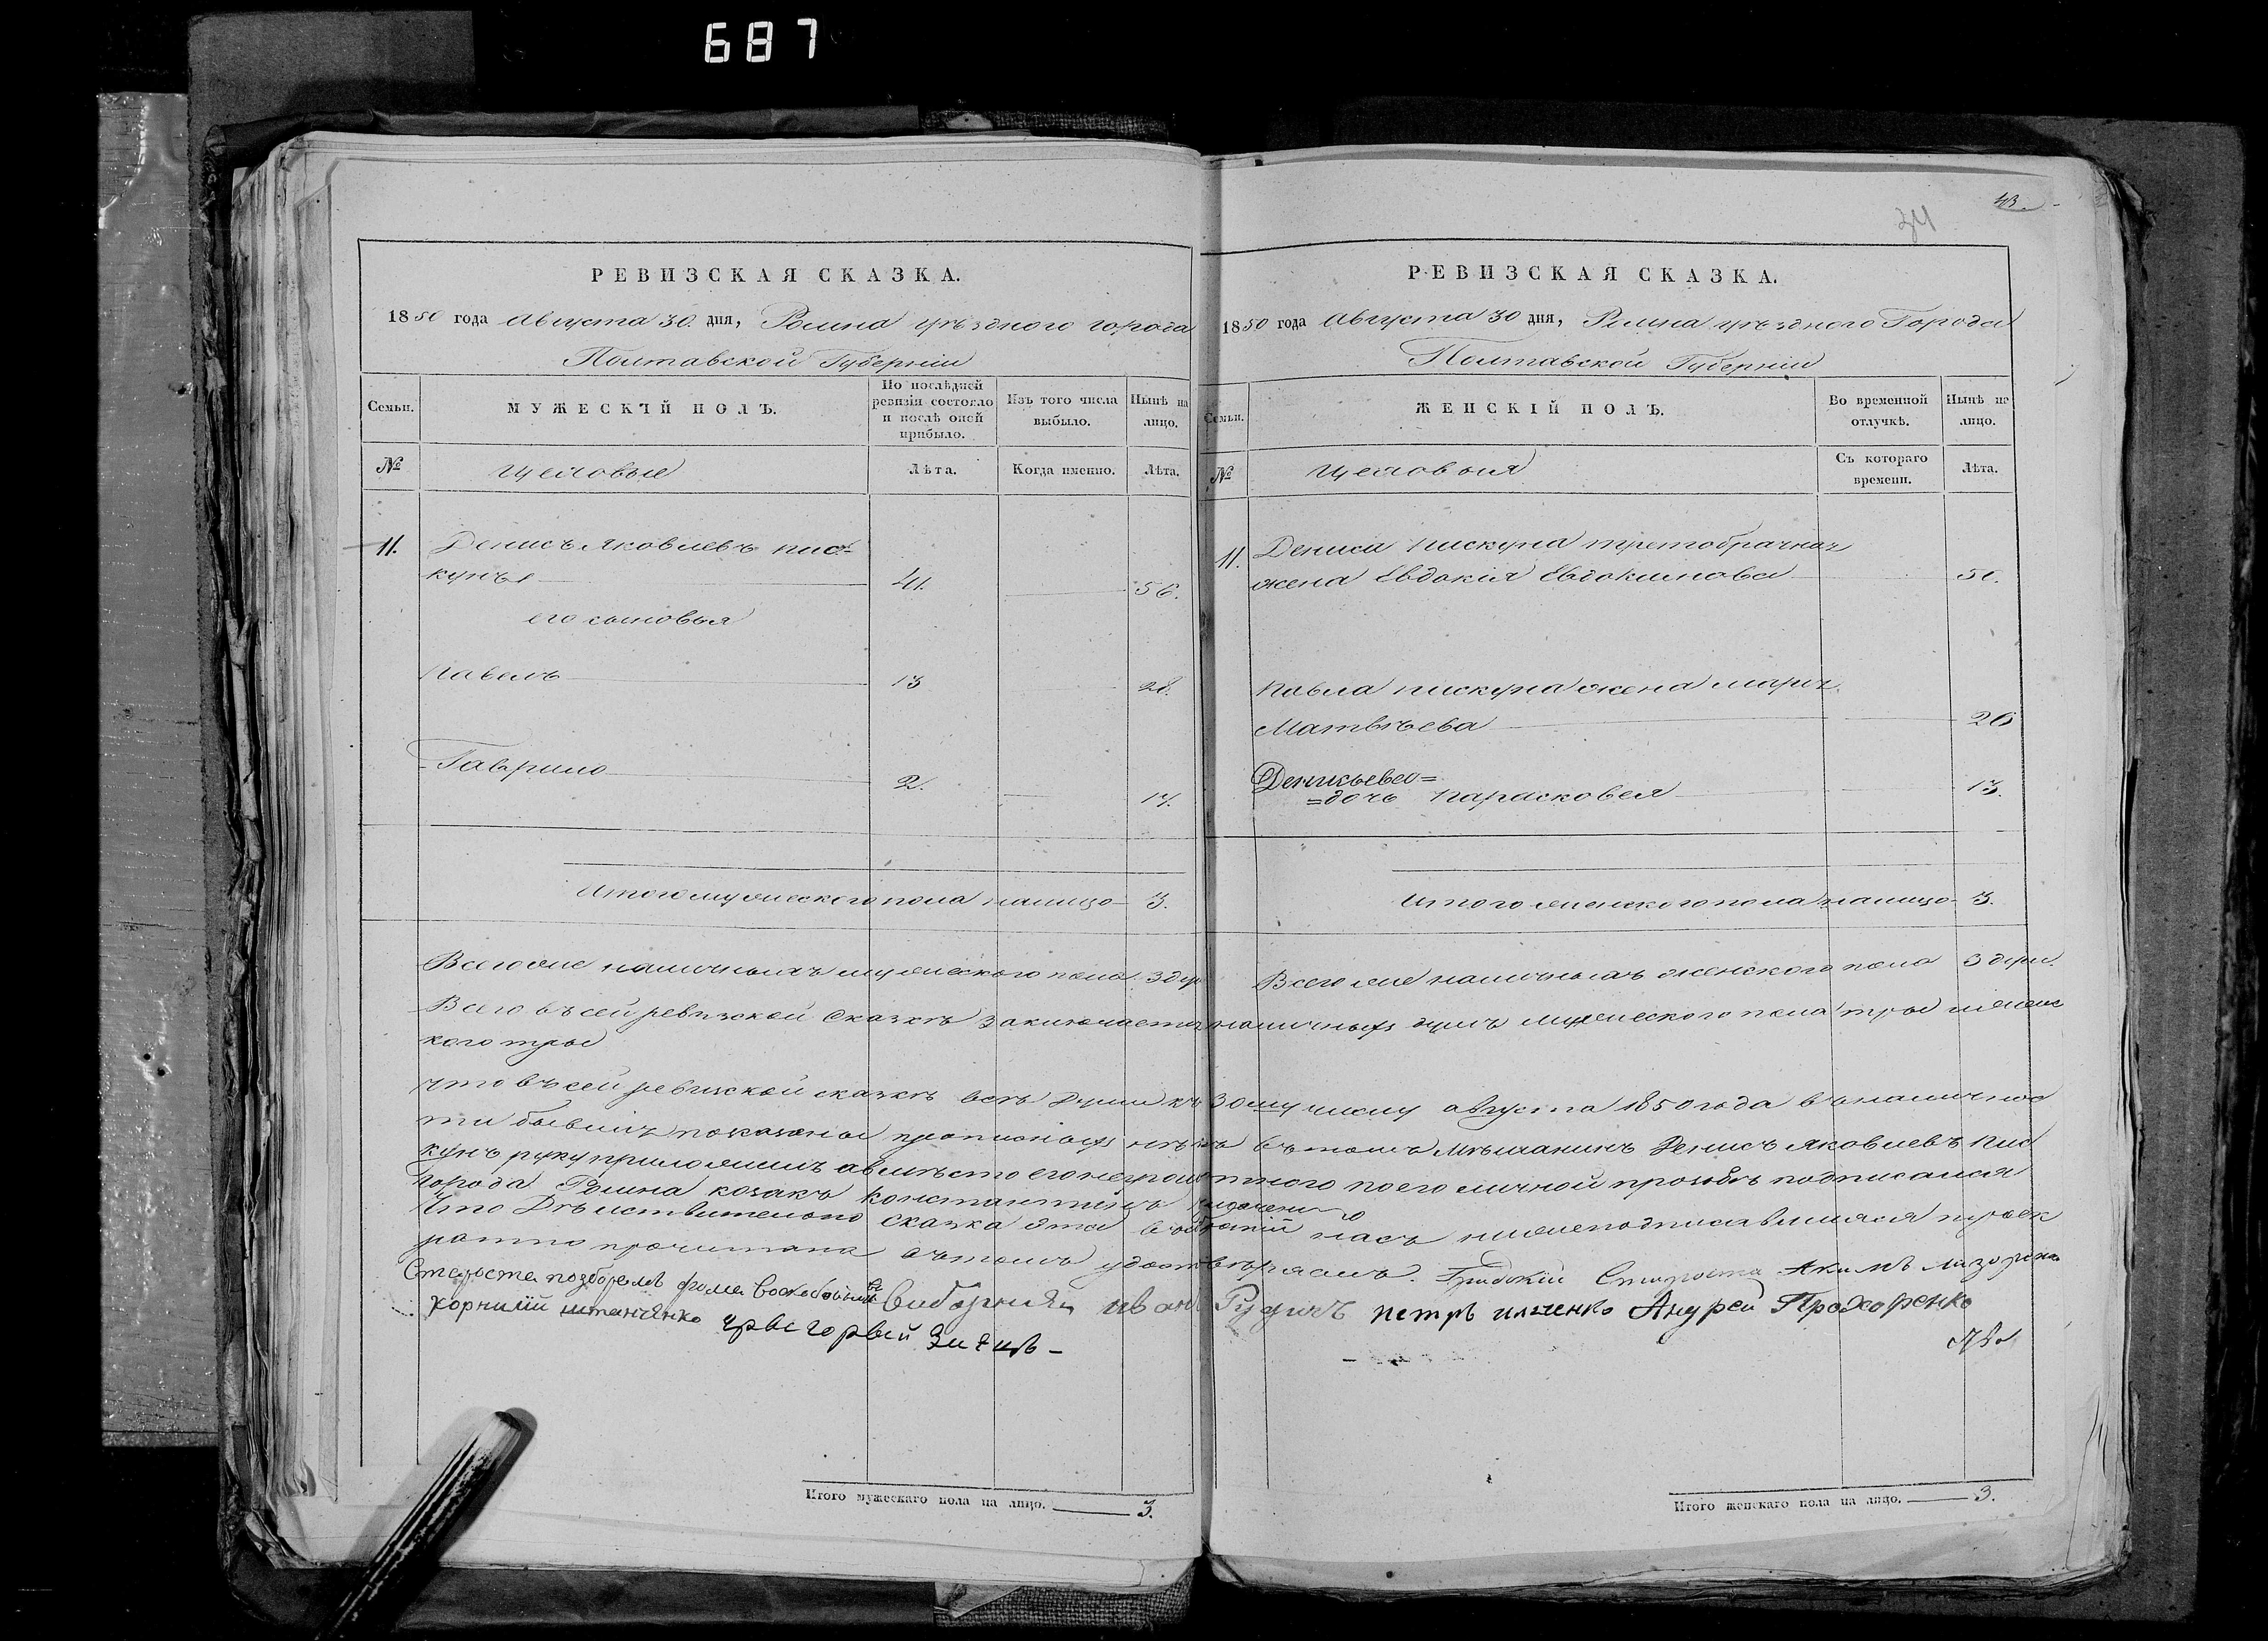 687
РЕВИЗСКАЯ СКАЗКА.
1850 года Августа 30. дня, Ромна уѣзднаго города
Полтавской Губерніи
Семьи.
МУЖЕСКІЙ ПОЛЪ.
По послѣдней ревизіи состояло и послѣ оной прибыло.
Изъ того числа выбыло.
Нынѣ на лицо.
№
Цеховые
Лѣта.
Когда именно.
Лѣта.
11. Денисъ Яковлевъ Пис-
кунъ 41. 56.
его сыновья
Павелъ 13 28.
Гаврило 2. 17.
Итого мужескаго пола налицо 3.
43.
34
РЕВИЗСКАЯ СКАЗКА.
1850 года Августа 30 дня, Ромна уѣзднаго Города
Полтавской Губерніи
Семьи.
ЖЕНСКІЙ ПОЛЪ.
Во временной отлучкѣ.
Нынѣ на лицо.
№
Цеховыя
Съ котораго времени.
Лѣта.
11. Дениса Пискуна третобрачная
жена Евдокія Евдокимова 50.
Павла Пискуна жена Марія
Матвѣева 26
Денисьева=
=дочь Парасковея 13.
Итого женскаго пола налицо 3.
Всего же наличныхъ мужескаго пола 3 душ
Всего же наличныхъ женскаго пола 3 душ.
Всего въ сей ревизской Сказкѣ заключается наличныхъ душъ мужескаго пола три и женс
кого три
Что въ сей ревизской сказкѣ всѣ души къ 30му числу августа 1850 года въ наличнос
ти бывшіе показаны прописныхъ нѣтъ въ томъ мѣщанинъ Денисъ Яковлевъ Пис
кунъ руку приложилъ а вмѣсто его неграмотнаго по его личной прозьбѣ подписался
города Ромна козакъ Константинъ
Что Дѣйствительно сказка эта въ общій насъ нижеподписавшихся
ратно прочитана въ томъ удостовѣряемъ. Градскій Староста Акимъ
Староста Фома
Корнилій Виборній Иванъ Рудикъ Петръ Ильченко Андрей Прохоренко
Итого мужескаго пола на лицо. 3.
Итого женскаго пола на лицо. 3.